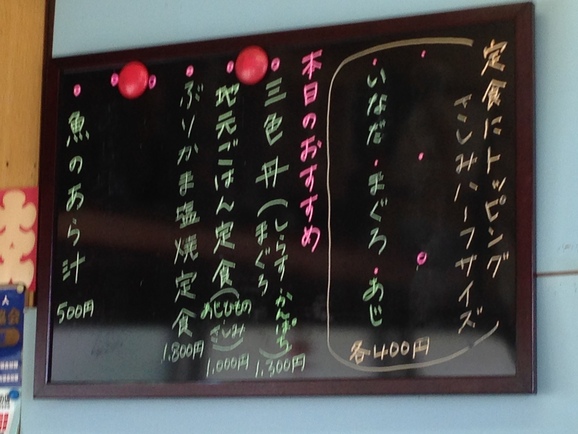 定食にトッピング
さしみハーフサイズ
・いなだ・まぐろ・あじ
各400円
本日のおすすめ
三色丼(しらす・かんぱち
まぐろ)
1,300円
地元ごはん定食(あじひもの
さしみ)
1,000円
ぶりかま塩焼定食
1,800円
魚のあら汁
500円